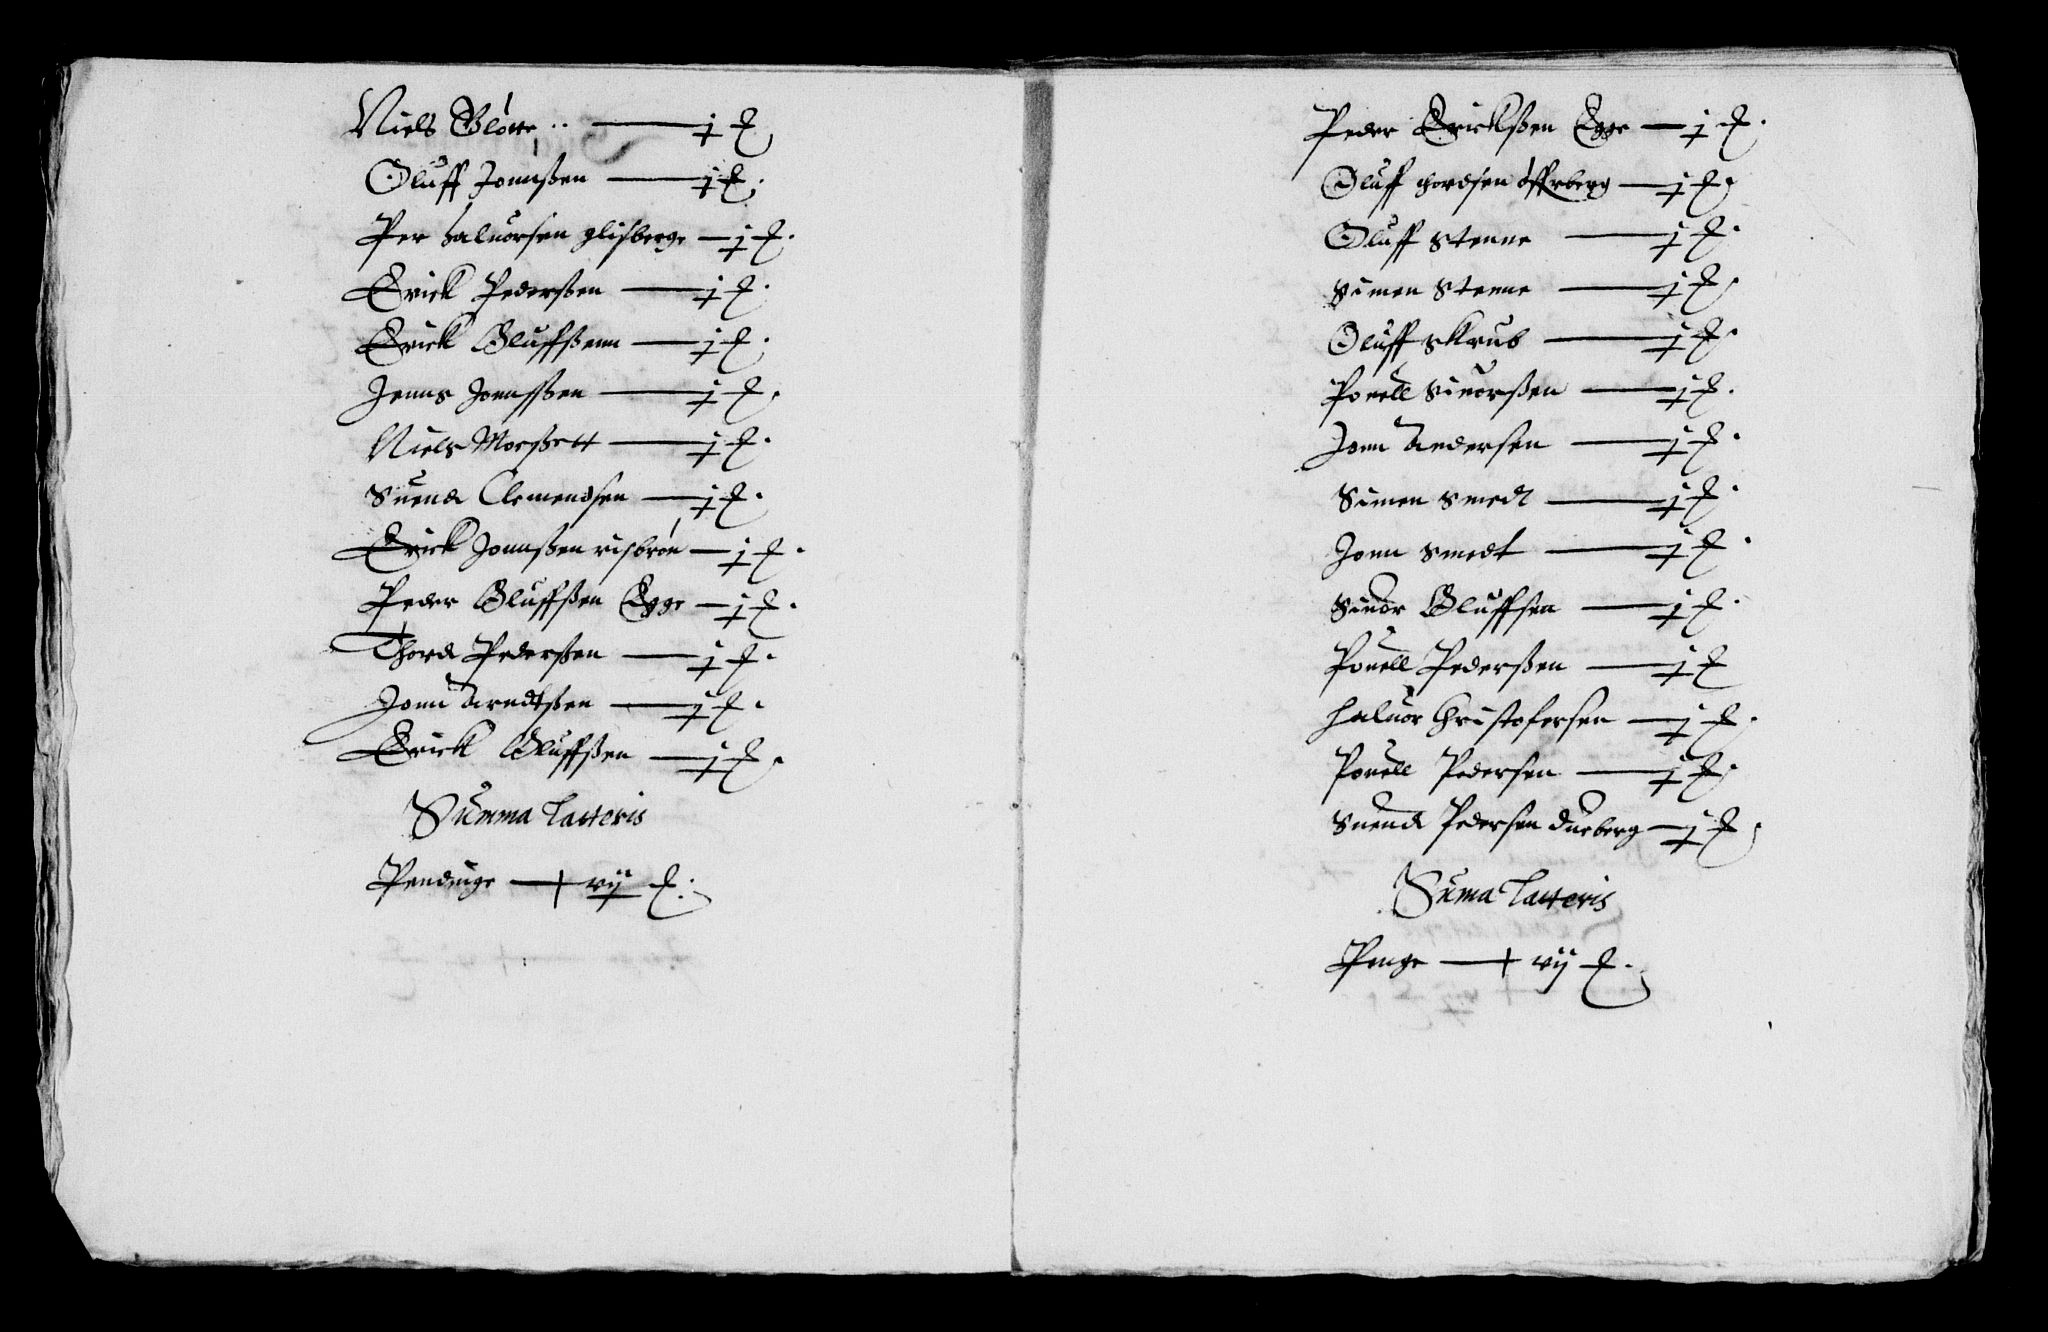 Niels Gløtte ·· — j d
Oluff Jonnßen — j d.
Per Haluorsen glisberge — j d.
Erick Pederßen — j d.
Erick Oluffßenn — j d.
Jenns Jonnsßen — j d.
Niels Morßett — j d.
Suend Clemendsen — j d.
Erick Jonnßen risbrøn — j d.
Peder Oluffßen Egge — j d.
Thord Pederßen — j d.
Jonn Arndtßen — j d.
Erick Oluffßen — j d.
Summa Latteris
Pendinge — vij d.
Peder Erickßen Egge — j d.
Oluff thordsen øffrberg — j d.
Oluff Stenne — j d.
Simen Stenne — j d.
Oluff Skrub — j d.
Pouell Siuorßen — j d.
Jonn Andersen — j d.
Simen Smedt — j d.
Jonn Smedt — j d.
Siuor Oluffsen — j d.
Pouell Pederßen — j d
Haluor Christofersen — j d.
Pouell Pedersen — j d.
Suend Pedersen Dueberg — j d.
Suma Latteris
Penge — vij d.